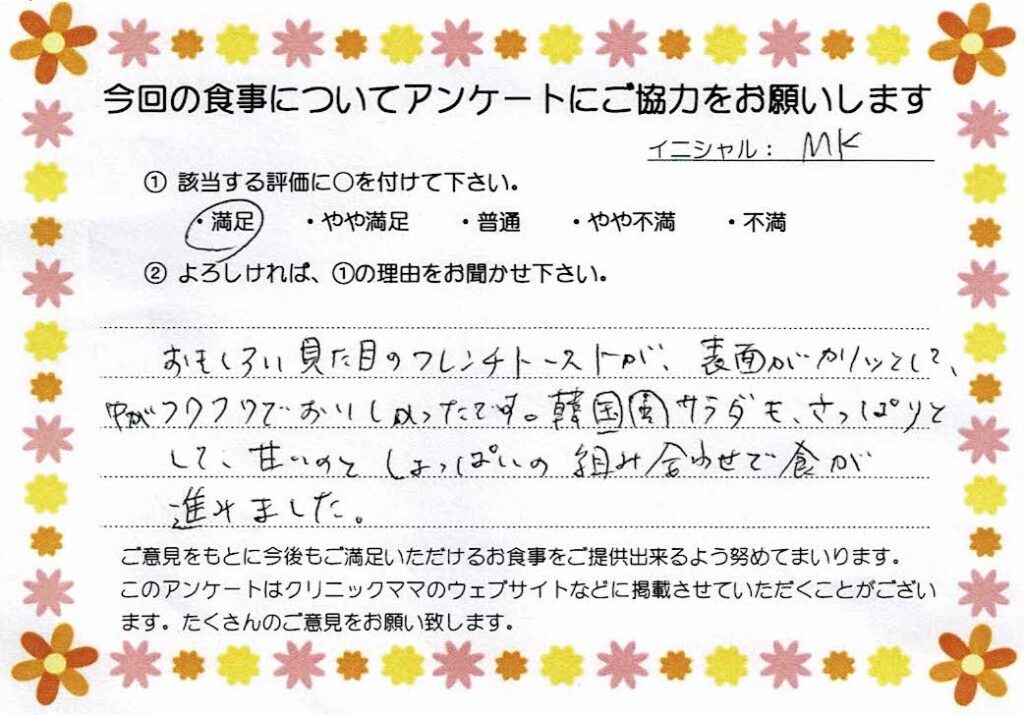 今回の食事についてアンケートにご協力をお願いします
イニシャル： MK
① 該当する評価に○を付けて下さい。
・満足 ・やや満足 ・普通 ・やや不満 ・不満
② よろしければ、①の理由をお聞かせ下さい。
おもしろい見た目のフレンチトーストが、表面がカリッとして、
中がフワフワでおいしかったです。韓国風サラダも、さっぱりと
して、甘いのとしょっぱいの組み合わせで食が
進みました。
ご意見をもとに今後もご満足いただけるお食事をご提供出来るよう努めてまいります。
このアンケートはクリニックママのウェブサイトなどに掲載させていただくことがござい
ます。たくさんのご意見をお願い致します。